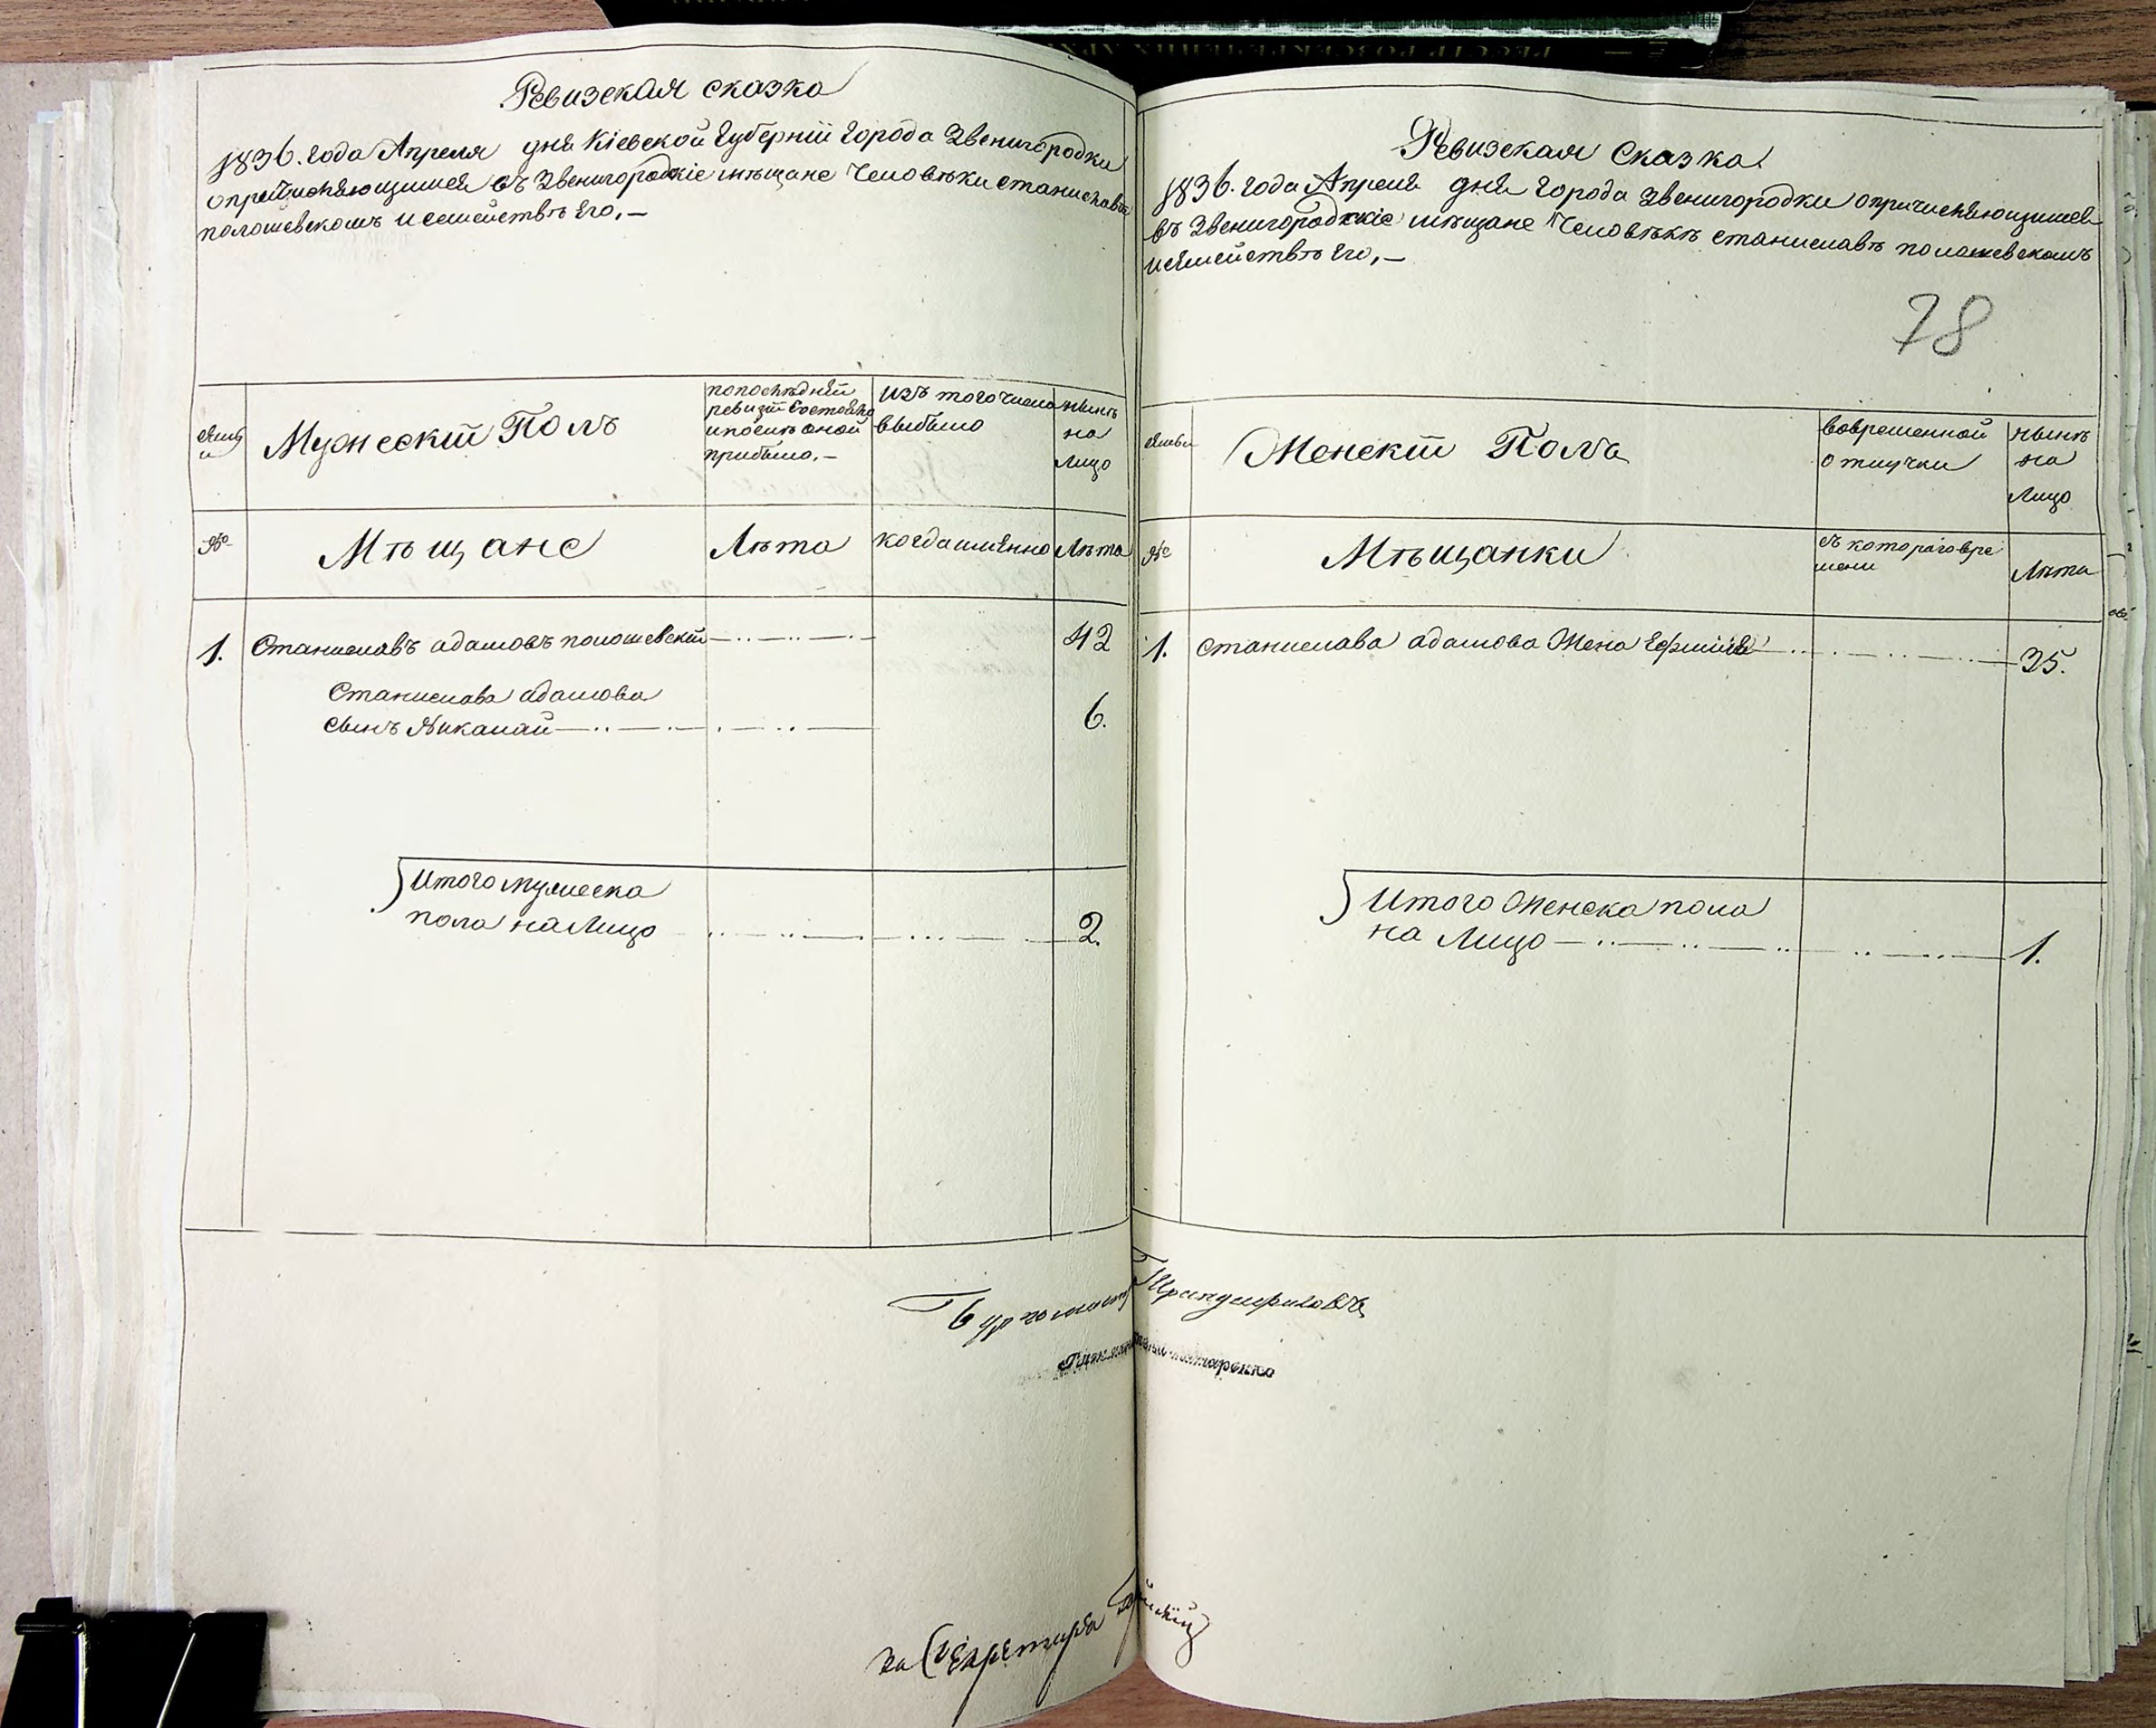 Ревизская сказка
1836. года Апреля дня Кіевской Губерніи Города Звенигородки
опричисляющимся въ Звенигородскіе мѣщане Человѣки станиславѣ
поло­шевскомъ и семействѣ Его,—
семьи
Мужескій Полъ
попослѣдней
ревизіи состояло
ипослѣ оной
прибыло.—
изъ того числа
выбыло
нынѣ
на
лицо
№
Мѣщане
Лѣта
когда имянно
Лѣта
1. Станиславъ адамовъ полошевскій 42
Станислава адамова
сынъ Николай 6.
Итого мужеска
пола на Лицо 2.
Бургомистръ
за Секретаря
Ревизская Сказка
1836. года Апреля дня Города Звенигородки опричисляющимся
въ Звенигородскіе мѣщане Человѣкѣ станиславѣ полошевскомъ
исемействѣ Его,—
78
семьи
Женскій Полъ
вовременной
отлучки
нынѣ
на
Лицо
№
Мѣщанки
съ котораго вре
мени
Лѣта
1. станислава адамова Жена 35.
Итого Женска пола
на Лицо 1.